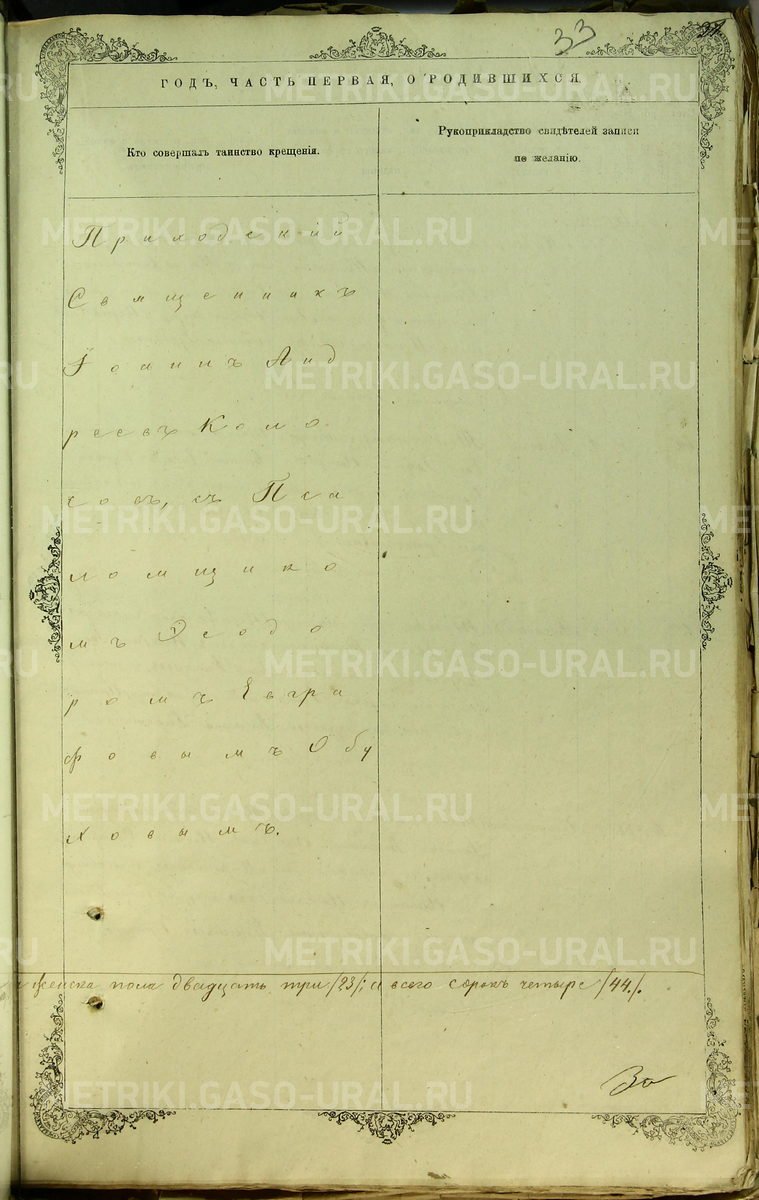 33
ГОДЪ, ЧАСТЬ ПЕРВАЯ, О РОДИВШИХСЯ
Кто совершалъ таинство крещенія.
Рукоприкладство свидѣтелей записи
по желанію.
Приходскій
Священникъ
Іоаннъ Анд
реевъ Коло
совъ, съ Пса
ломщико
мъ Ѳеодо
ромъ Евгра
фовымъ Обу
ховымъ.
и женска пола двадцать три /23/; а всего сорокъ четыре /44/.
За
METRIKI.GASO-URAL.RU